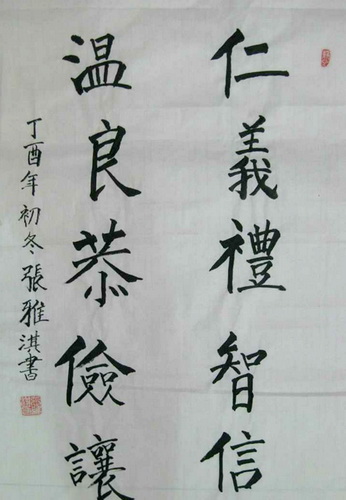 仁義禮智信
温良恭儉讓
丁酉年初冬張雅淇書